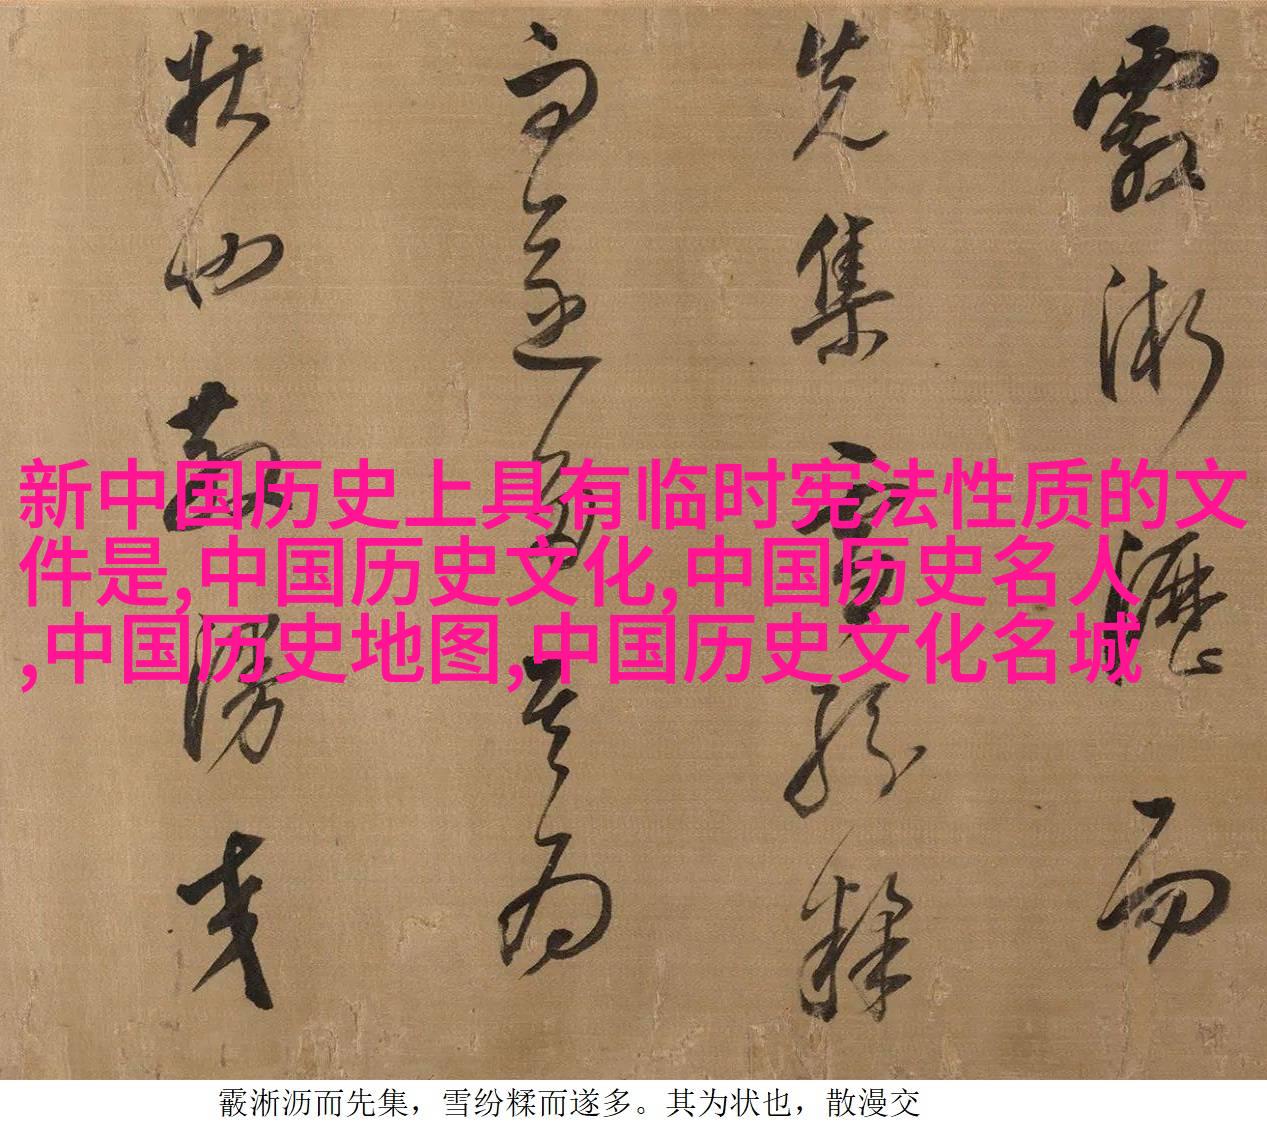 霰淅瀝而
先集雪紛糅
而遂多其為
狀也散漫交
新中国历史上具有临时宪法性质的文
件是,中国历史文化,中国历史名人
,中国历史地图,中国历史文化名城
霰淅沥而先集，雪纷糅而遂多。其为状也，散漫交